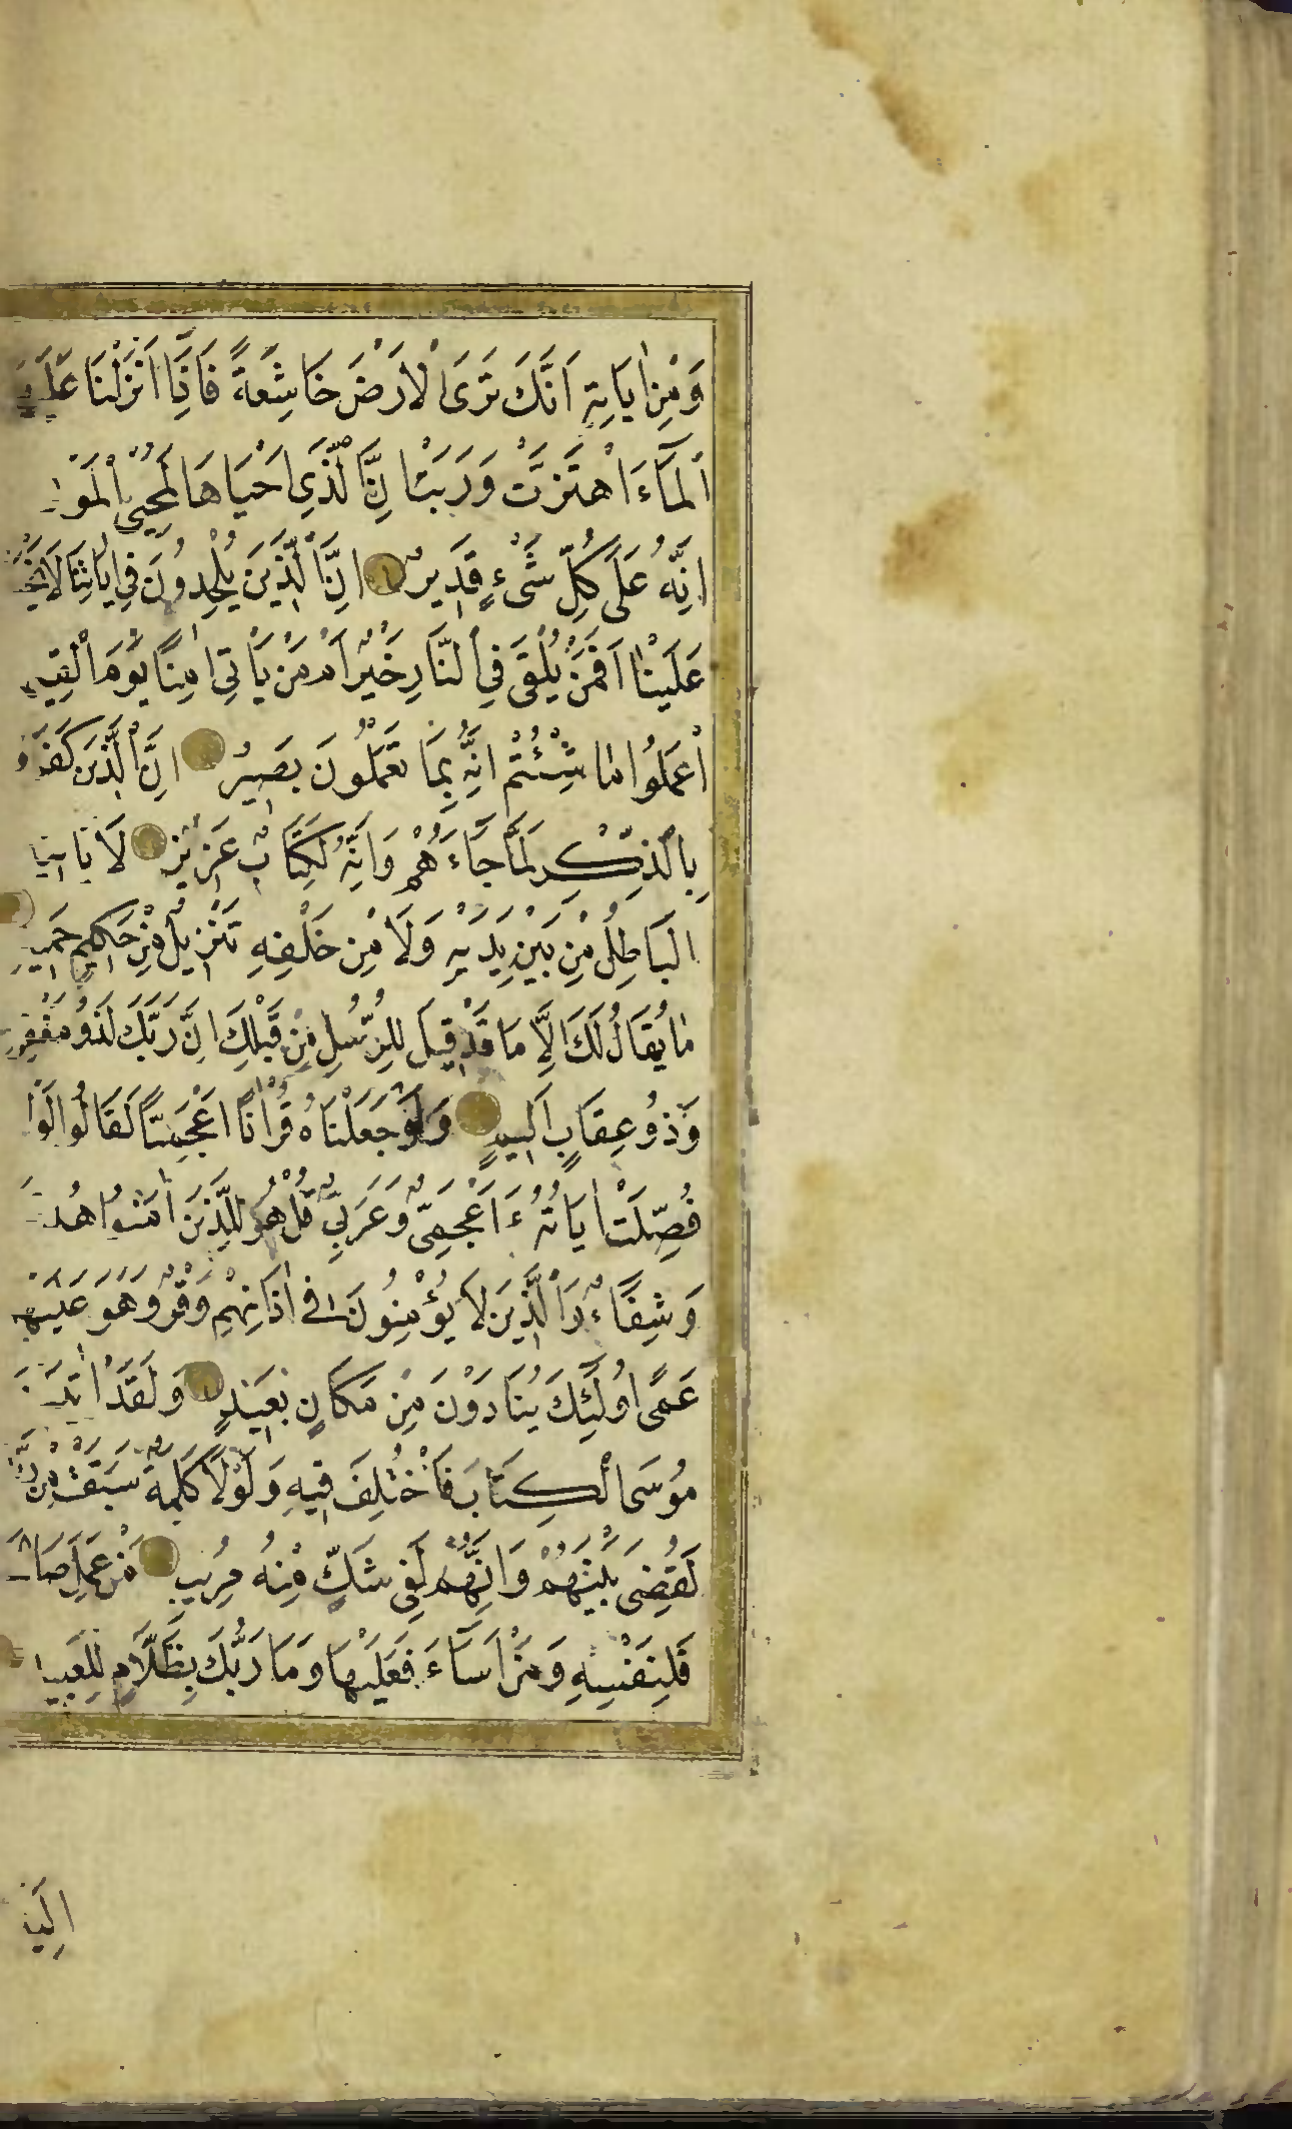 وَمِنْ اٰيَاتِهِ اَنَّكَ تَرَى الْاَرْضَ خَاشِعَةً فَاِذَا اَنْزَلْنَا
الْمَآءَ اهْتَزَّتْ وَرَبَتْ اِنَّ الَّذِى اَحْيَاهَا لَمُحْيِى
اِنَّهُ عَلَى كُلِّ شَىْءٍ قَدِيرٌ اِنَّ الَّذِينَ يُلْحِدُونَ فِى اٰيَاتِنَا
عَلَيْنَا اَفَمَنْ يُلْقَى فِى النَّارِ خَيْرٌ اَمْ مَنْ يَاْتِى اٰمِنًا يَوْمَ
اعْمَلُوا مَا شِئْتُمْ اِنَّهُ بِمَا تَعْمَلُونَ بَصِيرٌ اِنَّ الَّذِينَ
بِالذِّكْرِ لَمَّا جَآءَهُمْ وَاِنَّهُ لَكِتَابٌ عَزِيزٌ لَا
الْبَاطِلُ مِنْ بَيْنِ يَدَيْهِ وَلَا مِنْ خَلْفِهِ تَنْزِيلٌ مِنْ حَكِيمٍ
مَا يُقَالُ لَكَ اِلَّا مَا قَدْ قِيلَ لِلرُّسُلِ مِنْ قَبْلِكَ اِنَّ رَبَّكَ لَذُو
وَذُو عِقَابٍ اَلِيمٍ وَلَوْ جَعَلْنَاهُ قُرْاٰنًا اَعْجَمِيًّا لَقَالُوا
فُصِّلَتْ اٰيَاتُهُ ءَاَعْجَمِىٌّ وَعَرَبِىٌّ قُلْ هُوَ لِلَّذِينَ اٰمَنُوا
وَشِفَآءٌ وَالَّذِينَ لَا يُؤْمِنُونَ فِى اٰذَانِهِمْ وَقْرٌ وَهُوَ
عَمًى اُولَئِكَ يُنَادَوْنَ مِنْ مَكَانٍ بَعِيدٍ وَلَقَدْ
مُوسَى الْكِتَابَ فَاخْتُلِفَ فِيهِ وَلَوْلَا كَلِمَةٌ سَبَقَتْ مِنْ
لَقُضِىَ بَيْنَهُمْ وَاِنَّهُمْ لَفِى شَكٍّ مِنْهُ مُرِيبٍ مَنْ عَمِلَ
فَلِنَفْسِهِ وَمَنْ اَسَآءَ فَعَلَيْهَا وَمَا رَبُّكَ بِظَلَّامٍ